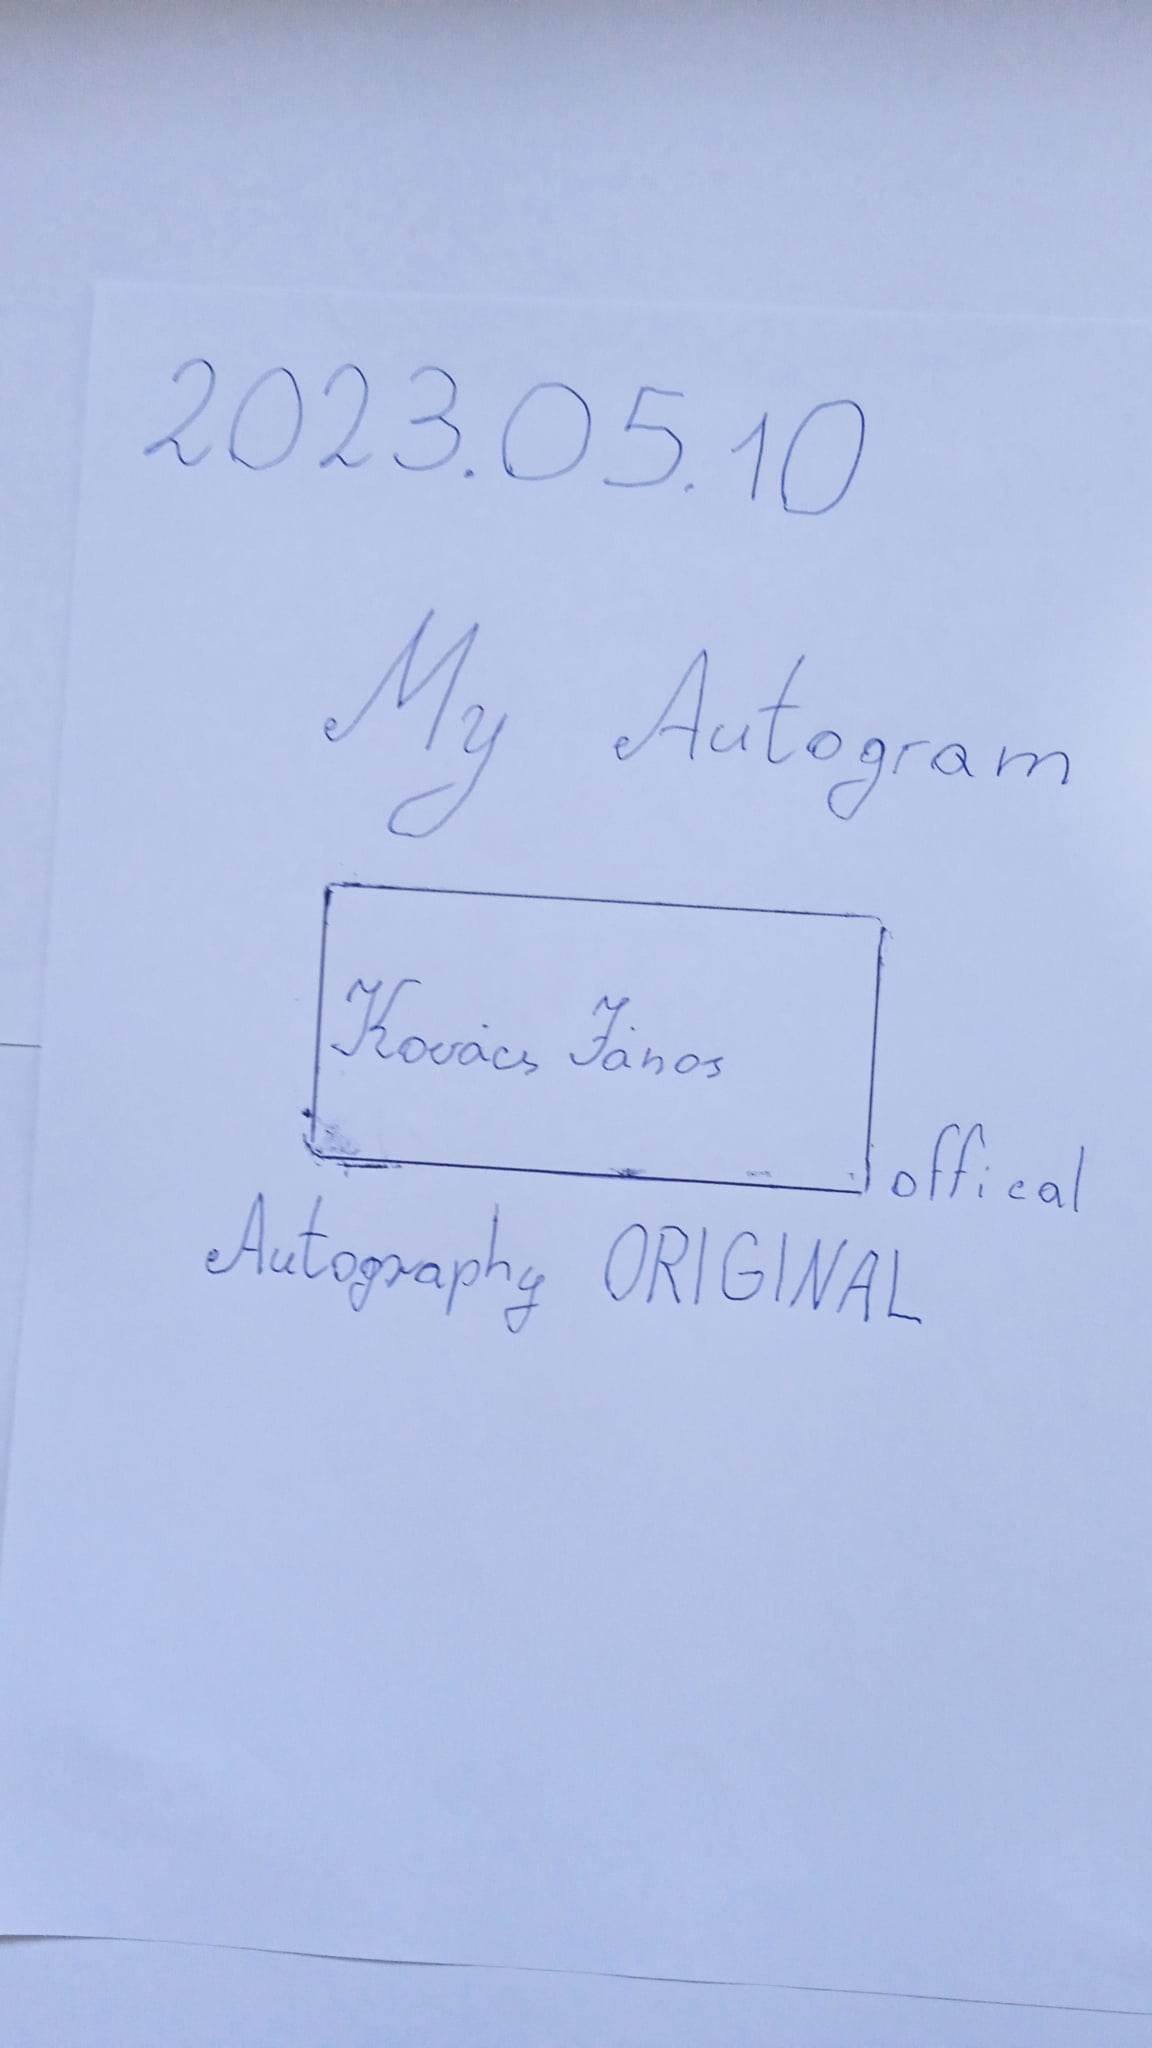 2023.05.10
My Autogram
Kovács János
offical
Autography ORIGINAL